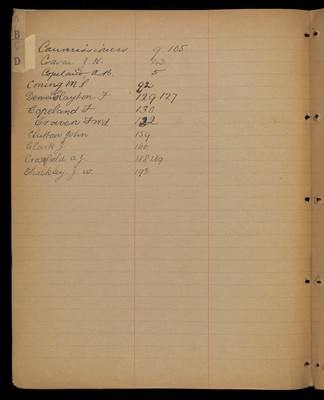 B
C
D
Commissioners 9 105
Craver J. H.
Copeland A. H. 5
Coming M S 92
Clayton F 129 127
Copeland F 130
Craven Fred 132
Clutton John 159
Clark J. 166
Crossfield a. J. 168 169
Chinkley J. W. 193